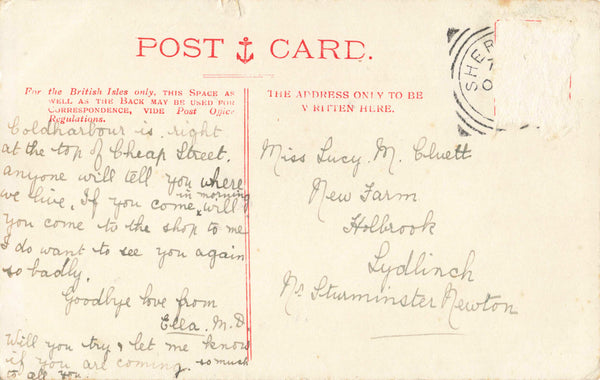 POST CARD.
For the British Isles only, THIS SPACE AS
WELL AS THE BACK MAY BE USED FOR
CORRESPONDENCE, VIDE Post Office
Regulations.
THE ADDRESS ONLY TO BE
WRITTEN HERE.
SHER
Coldharbour is right
at the top of Cheap Street.
anyone will tell you where
we live. If you come in morning will
you come to the shop to me
I do want to see you again
so badly.
Goodbye love from
Ella. M. D.
Will you try & let me know
if you are coming. so much
to all you
Miss Lucy M. Cluett
New Farm
Holbrook
Lydlinch
Nr Sturminster Newton